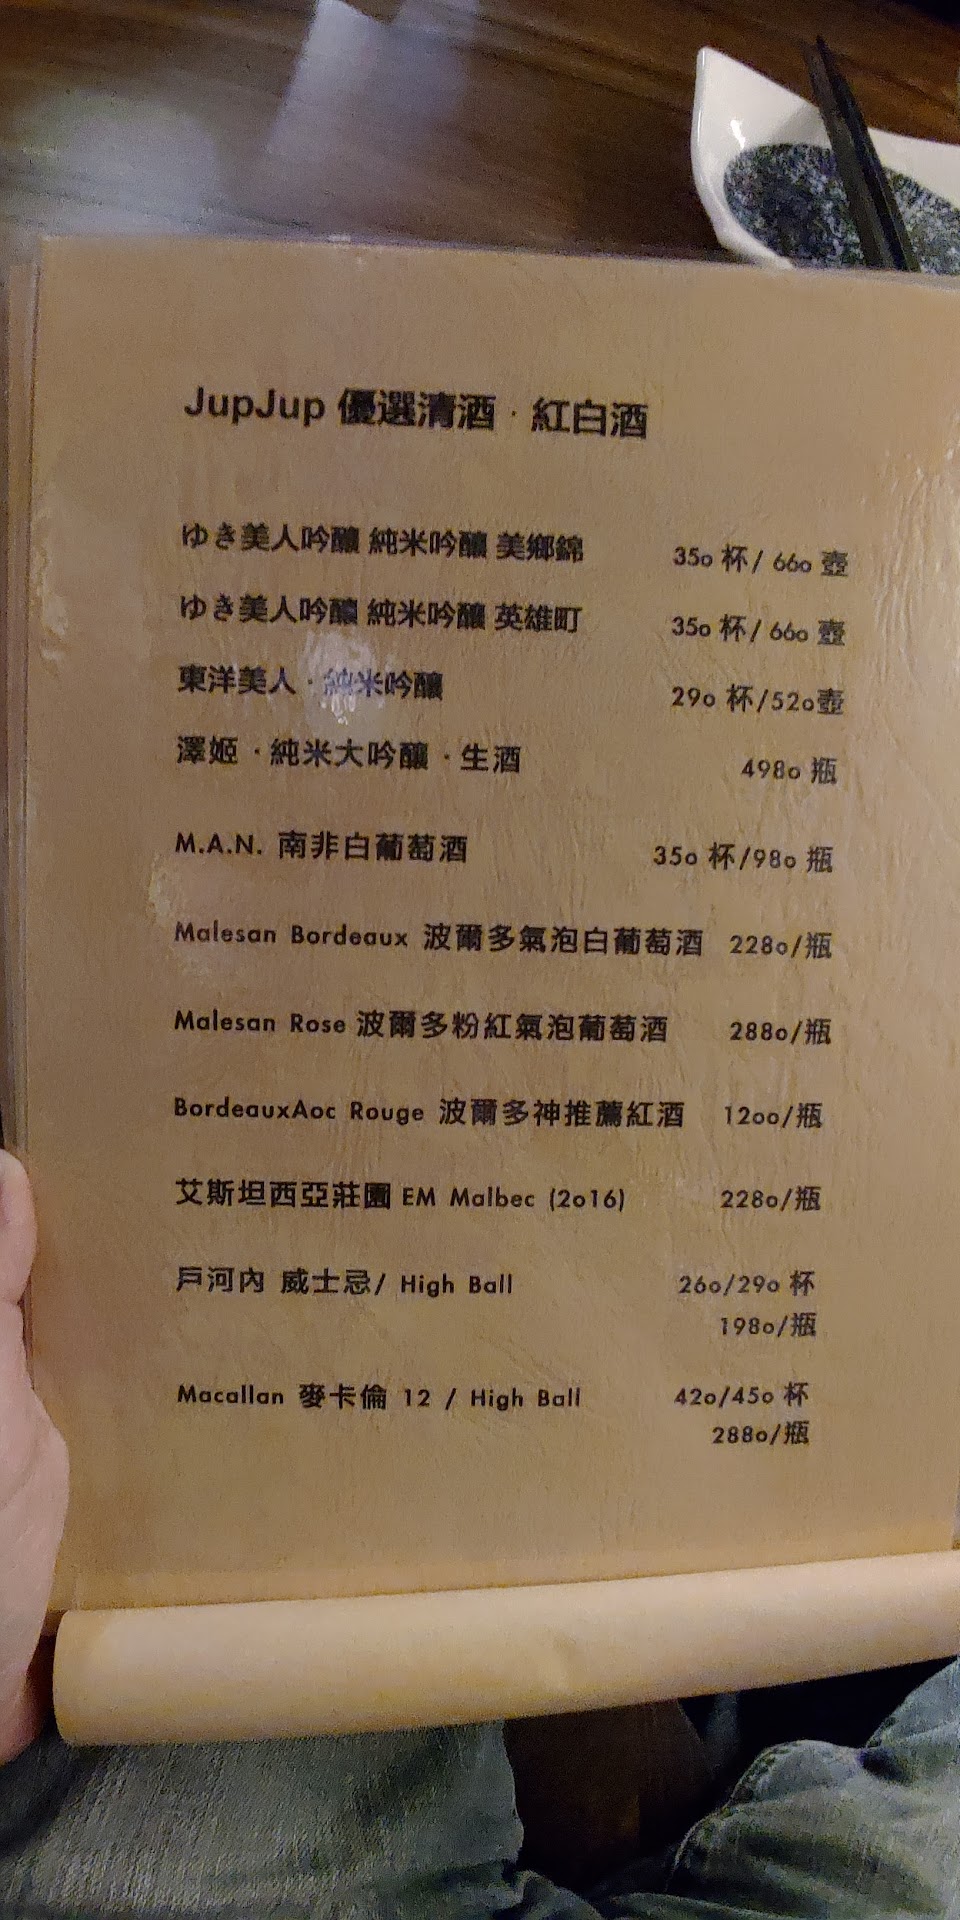 JupJup 優選清酒 · 紅白酒
ゆき美人吟釀 純米吟釀 美鄉錦 350 杯/ 660 壺
ゆき美人吟釀 純米吟釀 英雄町 350 杯/ 660 壺
東洋美人 · 純米吟釀 290 杯/520壺
澤姬 · 純米大吟釀 · 生酒 4980 瓶
M.A.N. 南非白葡萄酒 350 杯/980 瓶
Malesan Bordeaux 波爾多氣泡白葡萄酒 2280/瓶
Malesan Rose 波爾多粉紅氣泡葡萄酒 2880/瓶
BordeauxAoc Rouge 波爾多神推薦紅酒 1200/瓶
艾斯坦西亞莊園 EM Malbec (2016) 2280/瓶
戶河內 威士忌/ High Ball 260/290 杯
1980/瓶
Macallan 麥卡倫 12 / High Ball 420/450 杯
2880/瓶